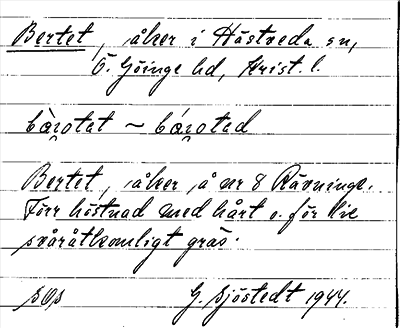 Bertet, åker i Hästveda sn,
Ö. Göinge hd, Krist. l.
bæ̀rotat ~ bǽrotad
Bertet, åker å nr 8 Rävninge.
Förr höstnad med hårt o. för lie
svåråtkomligt gräs.
sOs G. Sjöstedt 1944.